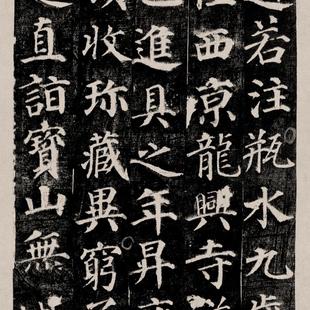 若注瓶水九歲
西京龍興寺
進具之年昇
收珍藏異窮子
直詣寶山無